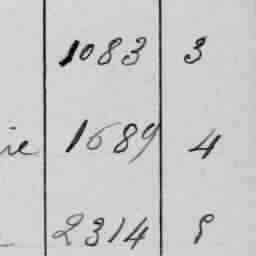 1083 3
ie 1689 4
2314 8